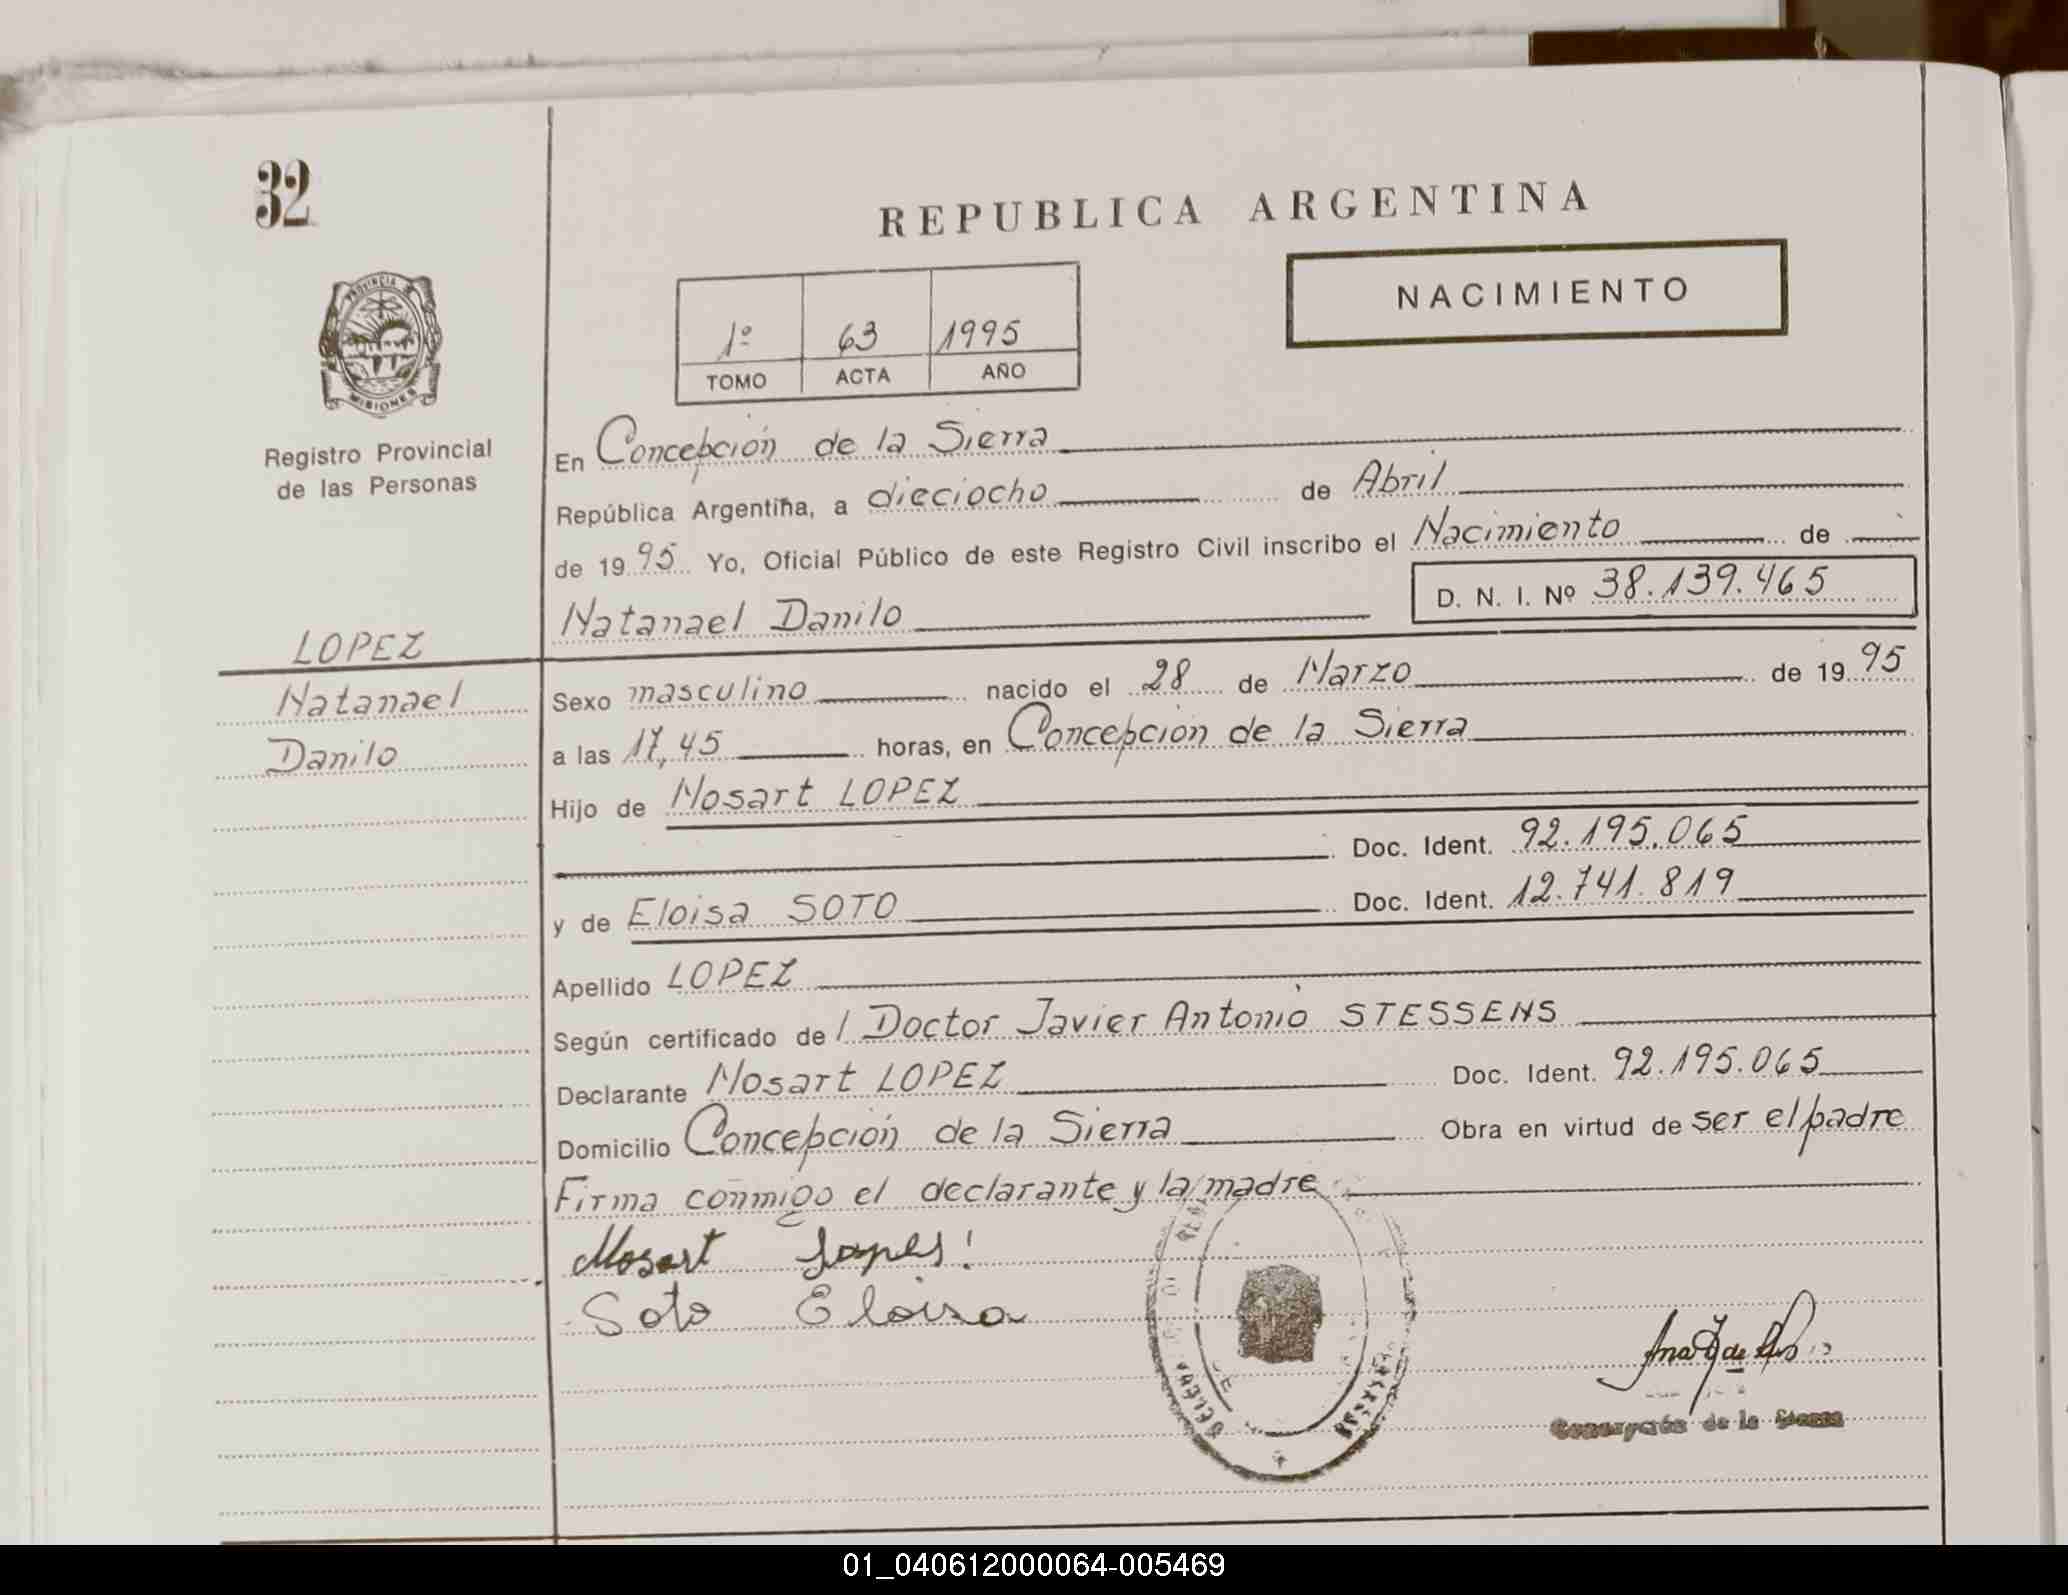 32
REPUBLICA ARGENTINA
NACIMIENTO
1º 63 1995
TOMO ACTA AÑO
PROVINCIA DE
MISIONES
Registro Provincial
de las Personas
En Concepción de la Sierra
República Argentina, a dieciocho de Abril
de 1995 Yo, Oficial Público de este Registro Civil inscribo el Nacimiento de
D. N. I. Nº 38.139.465
Natanael Danilo
LOPEZ
Natanael
Danilo
Sexo masculino nacido el 28 de Marzo de 1995
a las 17,45 horas, en Concepción de la Sierra
Hijo de Mosart LOPEZ
Doc. Ident. 92.195.065
y de Eloisa SOTO Doc. Ident. 12.741.819
Apellido LOPEZ
Según certificado de l Doctor Javier Antonio STESSENS
Declarante Mosart LOPEZ Doc. Ident. 92.195.065
Domicilio Concepción de la Sierra Obra en virtud de ser el padre
Firma conmigo el declarante y la madre
Mosart Lopes
Soto Eloisa
Concepción de la Sierra
01_040612000064-005469